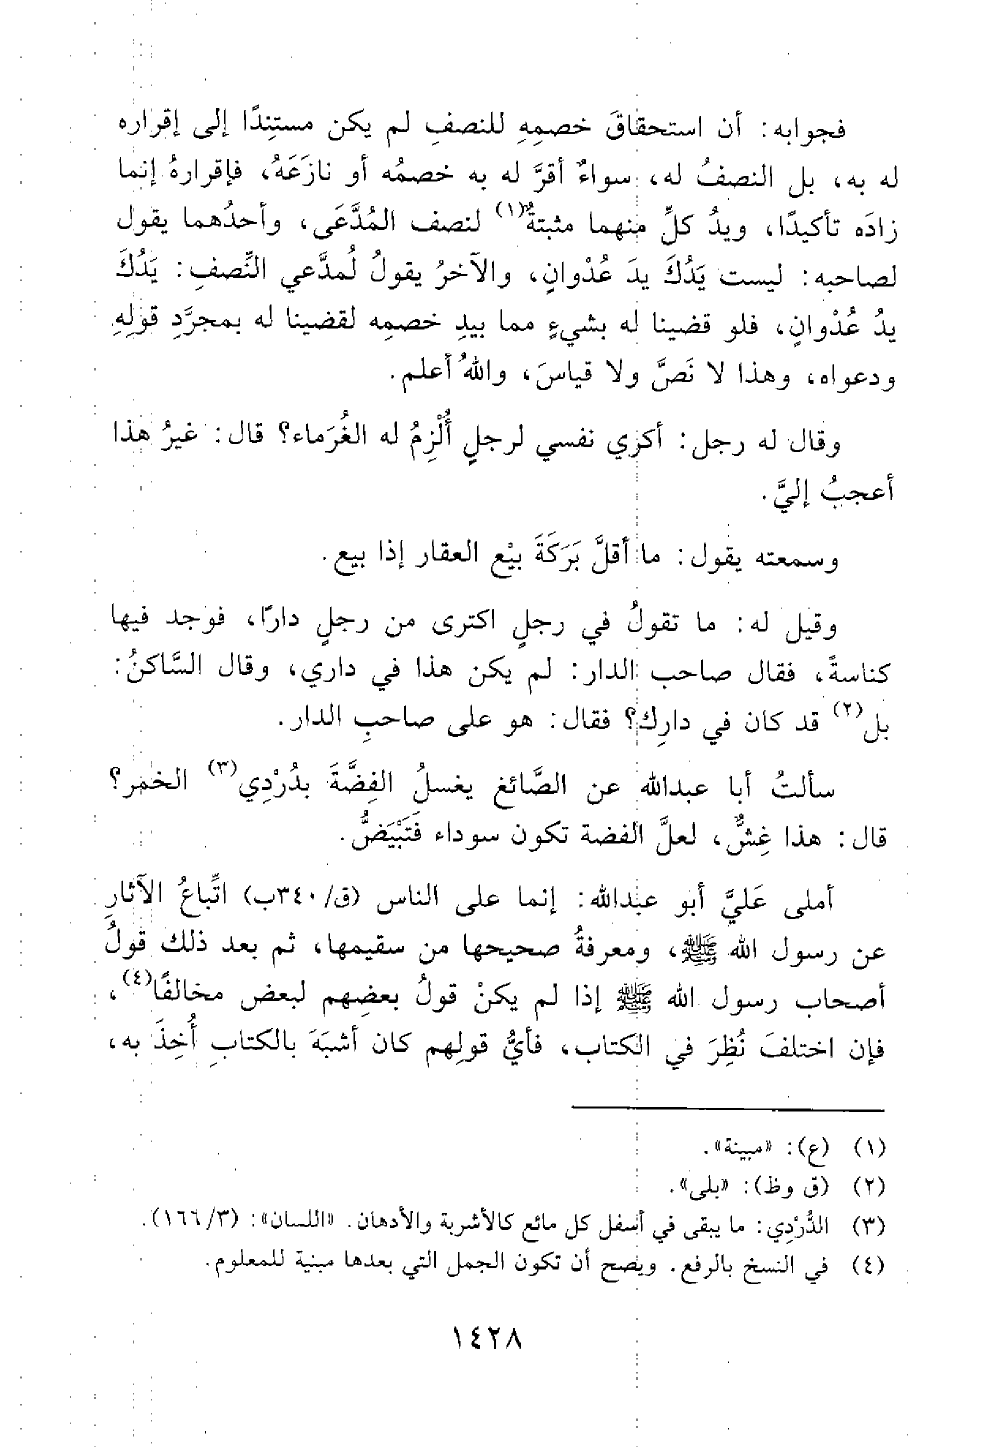 فجوابه: أن استحقاقَ خصمِهِ للنصفِ لم يكن مستنِدًا إلى إقراره
له به، بل النصفُ له، سواءٌ أقرَّ له به خصمُه أو نازَعَهُ، فإقرارهُ إنما
زادَه تأكيدًا، ويدُ كلٍّ منهما مثبتةٌ(١) لنصف المُدَّعَى، وأحدُهما يقول
لصاحبه: ليست يَدُكَ يدَ عُدْوانٍ، والآخرُ يقولُ لمدَّعي النِّصفِ: يَدُكَ
يدُ عُدْوانٍ، فلو قضينا له بشيءٍ مما بيدِ خصمِه لقضينا له بمجرَّدِ قولِهِ
ودعواه، وهذا لا نَصَّ ولا قياسَ، واللهُ أعلم.
وقال له رجل: أكري نفسي لرجلٍ أُلْزِمُ له الغُرَماء؟ قال: غيرُ هذا
أعجبُ إليَّ.
وسمعته يقول: ما أقلَّ بَرَكَةَ بيْع العقار إذا بيع.
وقيل له: ما تقولُ في رجلٍ اكترى من رجلٍ دارًا، فوجد فيها
كناسةً، فقال صاحب الدار: لم يكن هذا في داري، وقال السَّاكنُ:
بل(٢) قد كان في دارِك؟ فقال: هو على صاحبِ الدار.
سألتُ أبا عبدالله عن الصَّائغ يغسلُ الفِضَّةَ بدُرْدِي(٣) الخمر؟
قال: هذا غِشٌّ، لعلَّ الفضة تكون سوداء فَتَبْيَضُّ.
أملى عَليَّ أبو عبدالله: إنما على الناس (ق/٣٤٠ب) اتِّباعُ الآثارِ
عن رسول الله ﷺ، ومعرفةُ صحيحها من سقيمها، ثم بعد ذلك قولُ
أصحاب رسول الله ﷺ إذا لم يكنْ قولُ بعضِهم لبعض مخالفًا(٤)،
فإن اختلفَ نُظِرَ في الكتاب، فأيُّ قولِهم كان أشبَهَ بالكتابِ أُخِذَ به،
(١) (ع): «مبينة».
(٢) (ق وظ): «بلى».
(٣) الدُّرْدِي: ما يبقى في أسفل كل مائع كالأشربة والأدهان. «اللسان»: (٣/ ١٦٦).
(٤) في النسخ بالرفع. ويصح أن تكون الجمل التي بعدها مبنية للمعلوم.
١٤٢٨